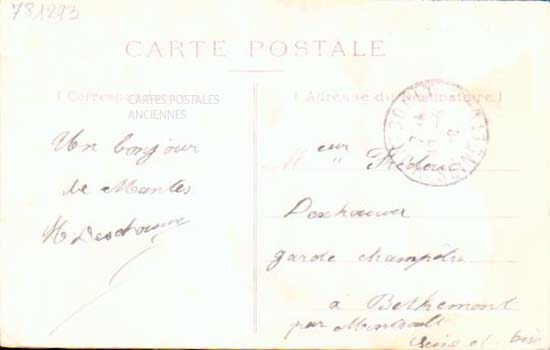 781293
CARTE POSTALE
(Correspondance
(Adresse du Destinataire)
CARTES POSTALES
ANCIENNES
Un bonjour
de Mantes
Mceur Frédéric
garde champêtre
à Bethemont
par Montsoult
Seine et Oise